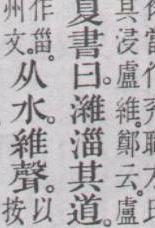 其浸盧維。鄭云。盧
夏書曰。濰淄其道。
作甾。
州文。
从水。維聲。
以
按